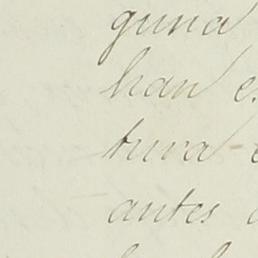 guna
han
tura
antes